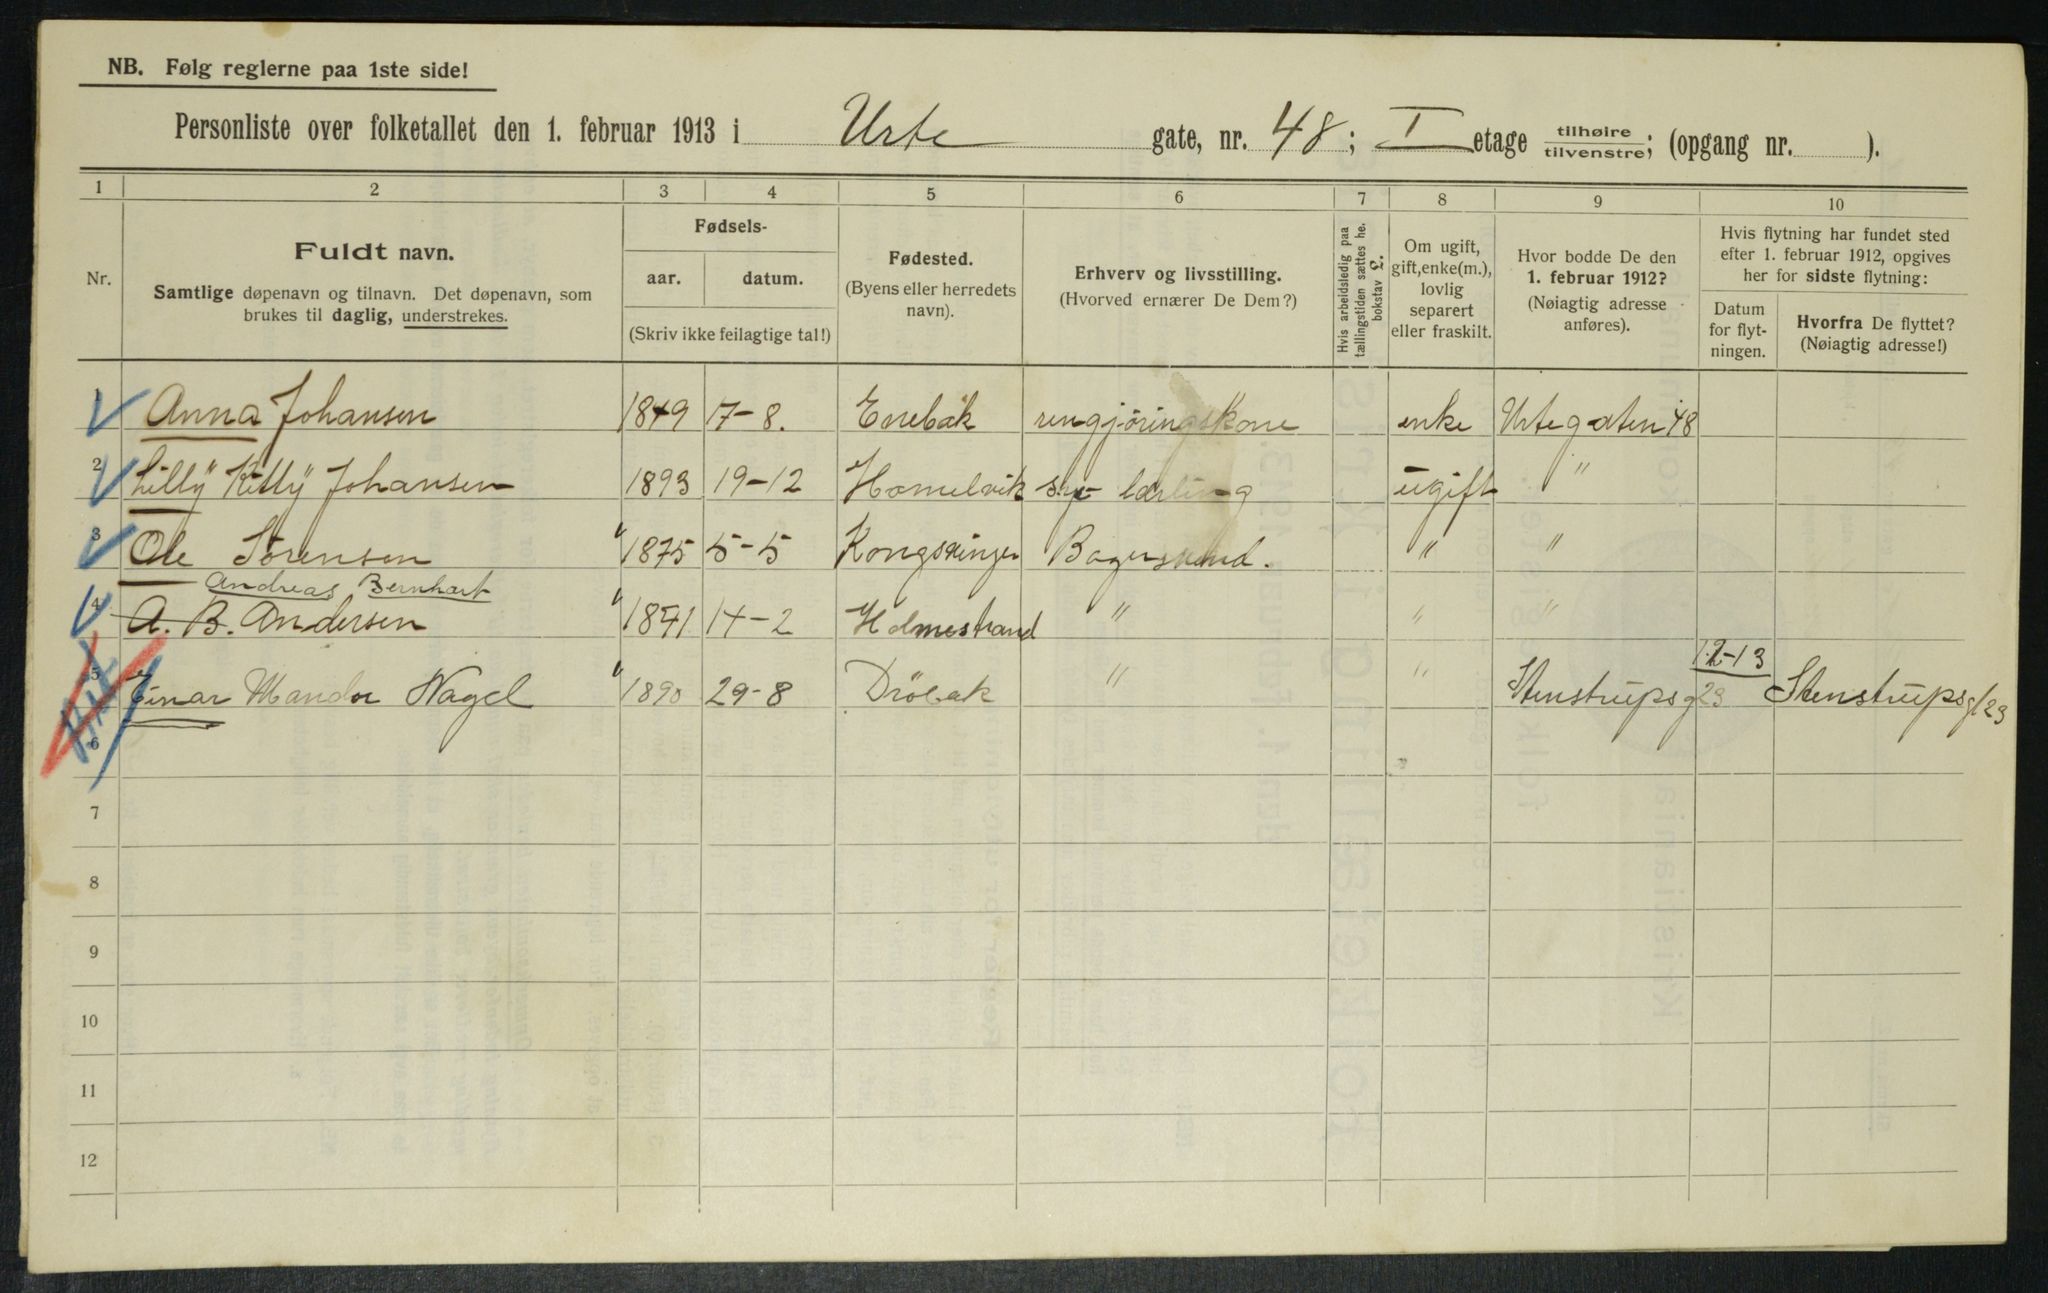 NB. Følg reglerne paa 1ste side!
Personliste over folketallet den 1. februar 1913 i Urte gate, nr. 48; I etage tilhøire/tilvenstre; (opgang nr. ).
1 2 3 4 5 6 7 8 9 10
Nr.
Fuldt navn.
Samtlige døpenavn og tilnavn. Det døpenavn, som
brukes til daglig, understrekes.
Fødsels-
aar. datum.
(Skriv ikke feilagtige tal!)
Fødested.
(Byens eller herredets
navn).
Erhverv og livsstilling.
(Hvorved ernærer De Dem?)
Hvis arbeidsledig paa
tællingstiden sættes he.
bokstav l.
Om ugift,
gift, enke(m.),
lovlig
separert
eller fraskilt.
Hvor bodde De den
1. februar 1912?
(Nøiagtig adresse
anføres).
Hvis flytning har fundet sted
efter 1. februar 1912, opgives
her for sidste flytning:
Datum
for flyt-
ningen.
Hvorfra De flyttet?
(Nøiagtig adresse!)
1 Anna Johansen 1849 17-8. Enebak rengjøringskone enke Urtegaten 48
2 Lilly Killy Johansen 1893 19-12 Homelvik sy- lærling ugift "
3 Ole Sørensen 1875 5-5 Kongsvinger Bagersvend. " "
Andreas Bernhart
4 A. B. Andersen 1871 14-2 Holmestrand " " "
5 Einar Mandor Nagel 1890 29-8 Dröbak " " Stenstrupsg 23 1.2-13 Stenstrupsgt 23
6
7
8
9
10
11
12